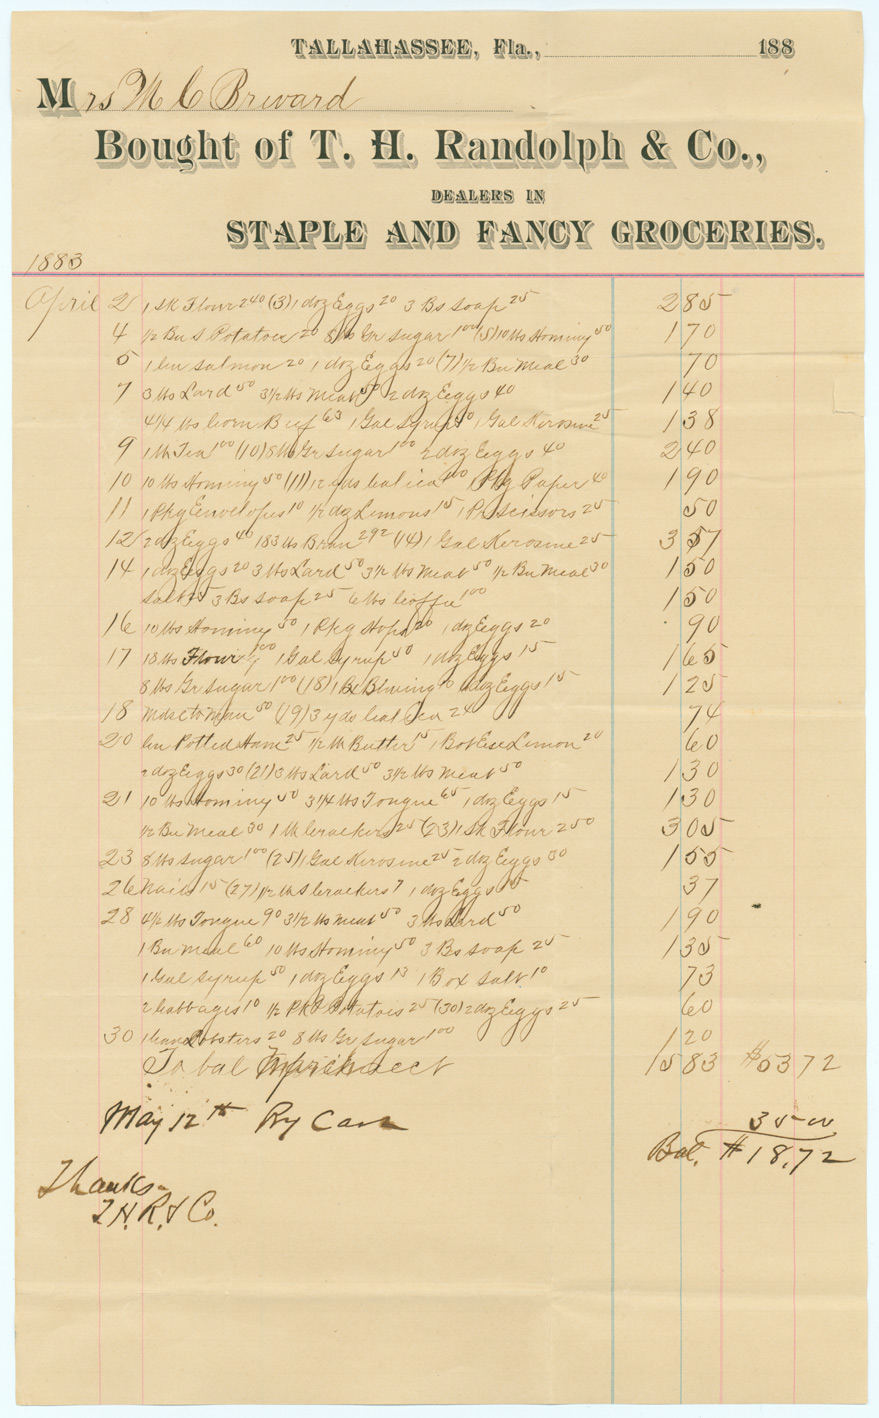 TALLAHASSEE, Fla., 188
Mrs M C Brevard
Bought of T. H. Randolph & Co.,
DEALERS IN
STAPLE AND FANCY GROCERIES.
1883
April 2 1 Sk Flour 240 (3) 1 doz Eggs 20 3 Bs Soap 25 285
4 1/2 Bu S Potatoes 20 8 lbs Gr Sugar 100 (5) 10 lbs Hominy 50 170
5 1 Can Salmon 20 1 doz Eggs 20 (7) 1/2 Bu Meal 30 70
7 3 lbs Lard 50 3 1/2 lbs Meat 50 2 doz Eggs 40 140
4 1/4 lbs Corn Beef 63 1 Gal Syrup 50 1 Gal Kerosine 25 138
9 1 lb Tea 100 (10) 8 lbs Gr Sugar 100 2 doz Eggs 40 240
10 10 lbs Hominy 50 (11) 12 yds Calico 100 1 Pkg Paper 40 190
11 1 Pkg Envelopes 10 1/2 dz Limons 15 1 Pr Scissors 25 50
12 2 dz Eggs 40 183 lbs Bran 292 (14) 1 Gal Kerosine 25 357
14 1 doz Eggs 20 3 lbs Lard 50 3 1/2 lbs Meat 50 1/2 Bu Meal 30 150
Salt 25 3 Bs Soap 25 6 lbs Coffee 100 150
16 10 lbs Hominy 50 1 Pkg Hops 20 1 doz Eggs 20 90
17 18 lbs Flour 100 1 Gal Syrup 40 1 doz Eggs 15 165
8 lbs Gr Sugar 100 (18) 1 Bx Bluing 10 1 doz Eggs 15 125
18 Mdse to Man 50 (19) 3 yds 24 74
20 Can Potted Ham 25 1/2 lb Butter 15 1 Bot Ese Lemon 20 60
2 doz Eggs 30 (21) 3 lbs Lard 50 3 1/2 lbs Meat 50 130
21 10 lbs Hominy 50 3 1/4 lbs Tongue 65 1 doz Eggs 15 130
1/2 Bu Meal 30 1 lb Crackers 25 (23) 1 Sk Flour 250 305
23 8 lbs Sugar 100 (25) 1 Gal Kerosine 25 2 doz Eggs 30 155
26 Nails 15 (27) 1/2 lb S Crackers 7 1 doz Eggs 15 37
28 4 1/2 lbs Tongue 90 3 1/2 lbs Meat 50 3 lbs Lard 50 190
1 Bu Meal 60 10 lbs Hominy 50 3 Bs Soap 25 135
1 Gal Syrup 50 1 doz Eggs 13 1 Box Salt 10 73
2 Cabbages 10 1/2 Pk Potatoes 25 (30) 2 doz Eggs 25 60
30 1 Can Lobsters 20 8 lbs Gr Sugar 100 120
To bal March acct 1583 $5372
May 12th By Cash 35 00
Bal. $18.72
Thanks
T.H.R. & Co.